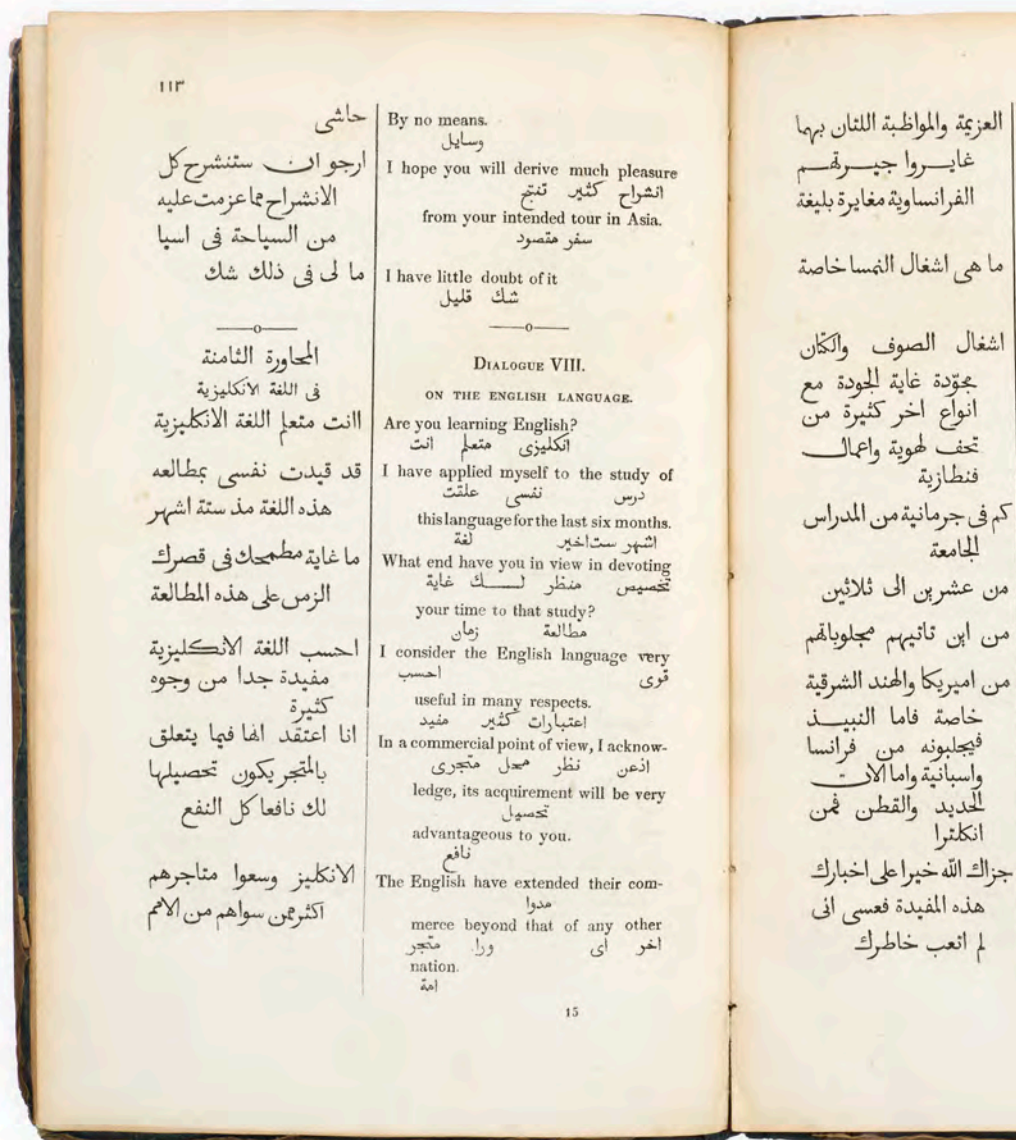 ١١٣
حاشى
ارجو ان ستنشرح كل
الانشراح مما عزمت عليه
من السياحة فى اسيا
ما لى فى ذلك شك
المحاورة الثامنة
فى اللغة الانكليزية
اانت متعلم اللغة الانكليزية
قد قيدت نفسى بمطالعه
هذه اللغة مذ ستة اشهر
ما غاية مطمحك فى قصرك
الزمن على هذه المطالعة
احسب اللغة الانكليزية
مفيدة جدا من وجوه
كثيرة
انا اعتقد انها فيما يتعلق
بالمتجر يكون تحصيلها
لك نافعا كل النفع
الانكليز وسعوا متاجرهم
اكثر ممن سواهم من الامم
By no means.
وسايل
I hope you will derive much pleasure
انشراح كثير تنتج
from your intended tour in Asia.
سفر مقصود
I have little doubt of it
شك قليل
DIALOGUE VIII.
ON THE ENGLISH LANGUAGE.
Are you learning English?
انكليزى متعلم انت
I have applied myself to the study of
درس نفسى علقت
this language for the last six months.
اشهر ست اخير لغة
What end have you in view in devoting
تخصيص منظر لك غاية
your time to that study?
مطالعة زمان
I consider the English language very
قوى احسب
useful in many respects.
اعتبارات كثير مفيد
In a commercial point of view, I acknow-
اذعن نظر محل متجرى
ledge, its acquirement will be very
تحصيل
advantageous to you.
نافع
The English have extended their com-
مدوا
merce beyond that of any other
اخر اى ورا. متجر
nation.
امة
15
العزيمة والمواظبة اللتان بهما
غايروا جيرتهم
الفرانساوية مغايرة بليغة
ما هى اشغال النمسا خاصة
اشغال الصوف والكتان
مجوّدة غاية الجودة مع
انواع اخر كثيرة من
تحف لهوية واعمال
فنطازية
كم فى جرمانية من المدراس
الجامعة
من عشرين الى ثلاثين
من اين تاتيهم مجلوباتهم
من اميريكا والهند الشرقية
خاصة فاما النبيذ
فيجلبونه من فرانسا
واسبانية واما الات
الحديد والقطن فمن
انكلترا
جزاك الله خيرا على اخبارك
هذه المفيدة فعسى انى
لم اتعب خاطرك